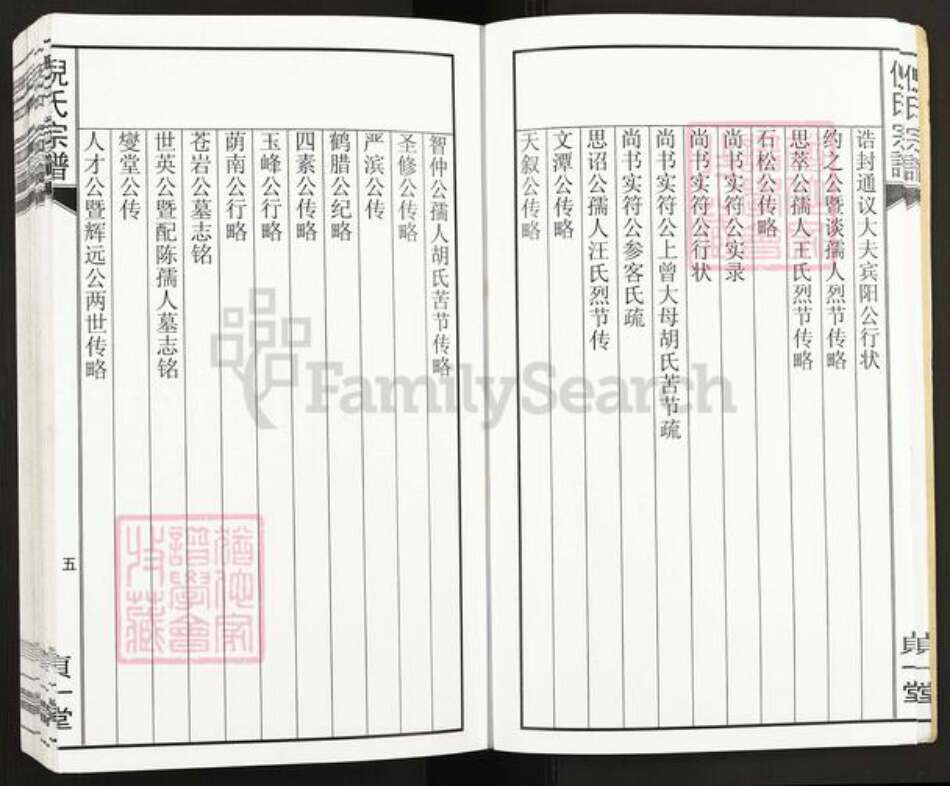 倪氏宗谱
诰封通议大夫宾阳公行状
约之公暨谈孺人烈节传略
思萃公孺人王氏烈节传略
石松公传略
尚书实符公实录
尚书实符公行状
尚书实符公上曾大母胡氏苦节疏
尚书实符公参客氏疏
思诏公孺人汪氏烈节传
文潭公传略
天叙公传略
贞一堂
智仲公孺人胡氏苦节传略
圣修公传略
严滨公传
鹤腊公纪略
四素公传略
玉峰公行略
荫南公行略
苍岩公墓志铭
世英公暨配陈孺人墓志铭
燮堂公传
人才公暨辉远公两世传略
倪氏宗谱
五
贞一堂
FamilySearch